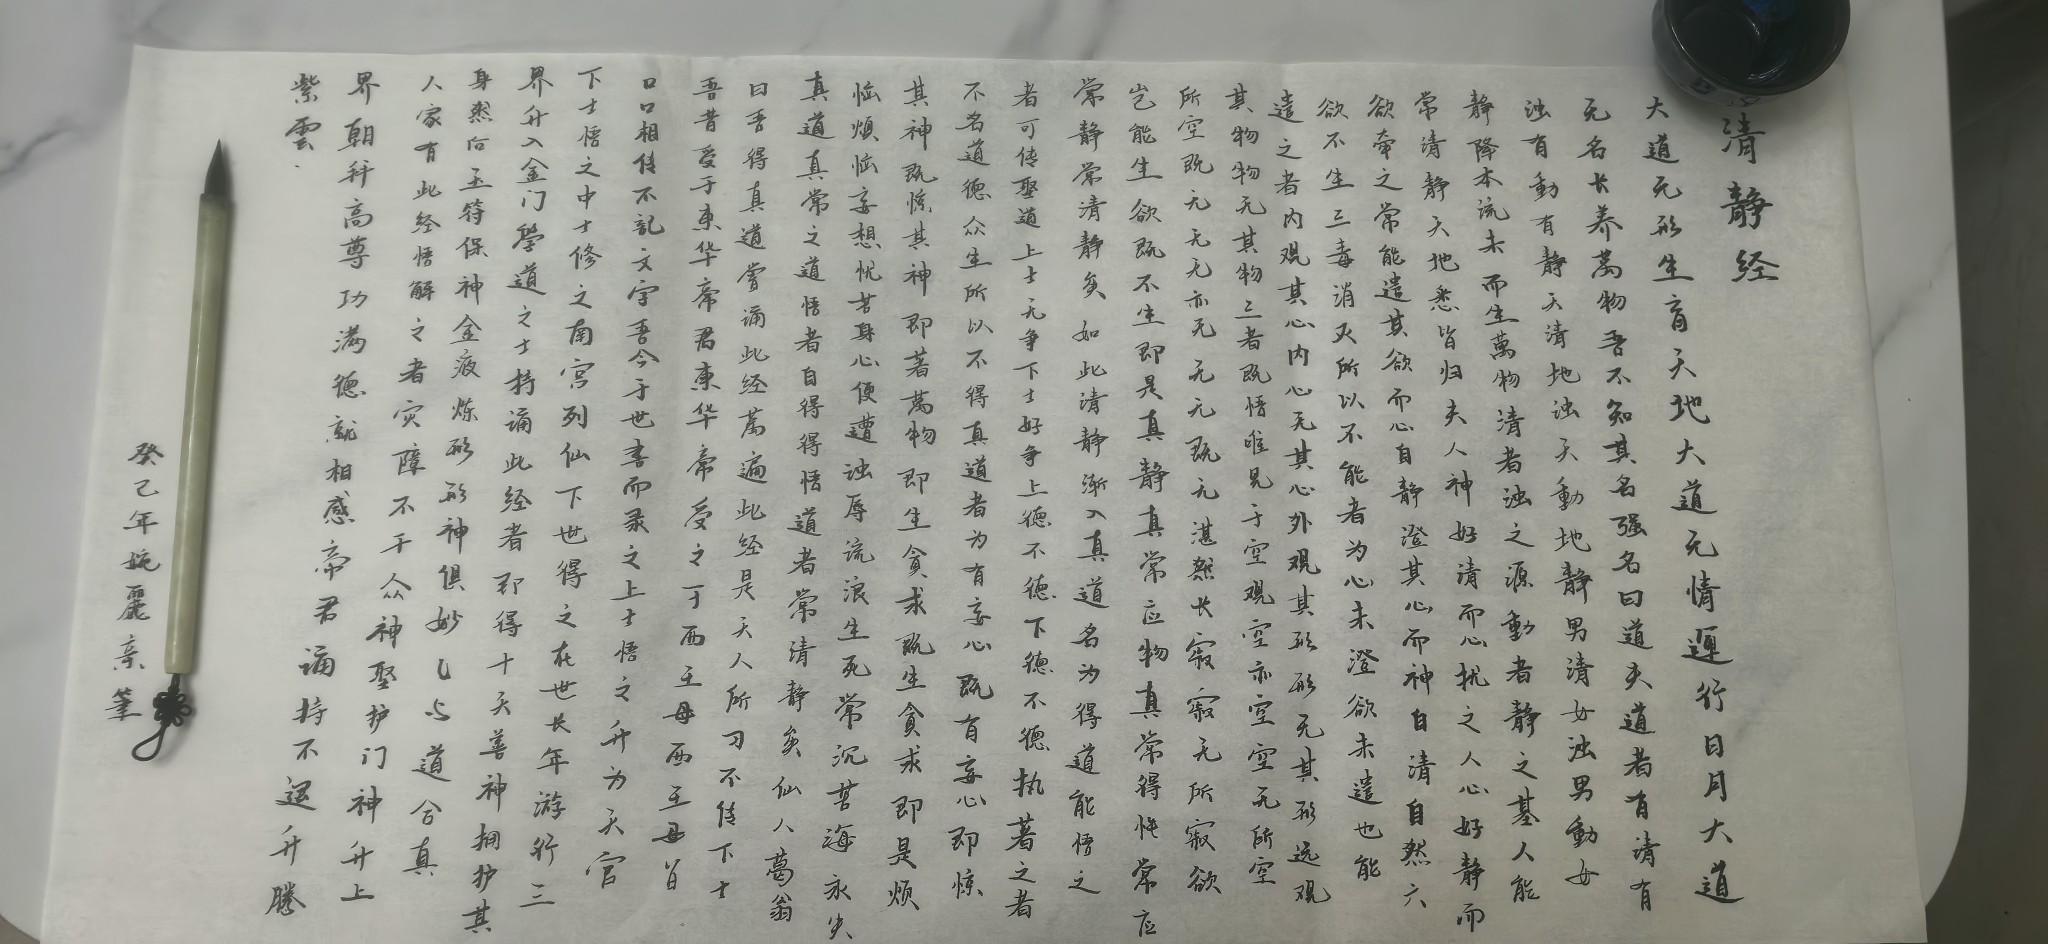 清静经
大道无形生育天地大道无情運行日月大道
无名长养萬物吾不知其名强名曰道夫道者有清有
浊有動有静天清地浊天動地静男清女浊男動女
静降本流末而生萬物清者浊之源動者静之基人能
常清静天地悉皆归夫人神好清而心扰之人心好静而
欲牵之常能遣其欲而心自静澄其心而神自清自然六
欲不生三毒消灭所以不能者为心未澄欲未遣也能
遣之者内观其心内心无其心外觀其形形无其形远观
其物物无其物三者既悟唯见于空观空亦空空无所空
所空既无无无亦无无无既无湛然长寂寂无所寂欲
岂能生欲既不生即是真静真常应物真常得性常应
常静常清静矣如此清静渐入真道名为得道能悟之
者可传聖道上士无争下士好争上德不德下德不德执著之者
不名道德众生所以不得真道者为有妄心既有妄心即惊
其神既惊其神即著萬物即生贪求既生贪求即是烦
恼煩恼妄想忧苦身心便遭浊辱流浪生死常沉苦海永失
真道真常之道悟者自得得悟道者常清静矣仙人葛翁
曰吾得真道嘗诵此经萬遍此经是天人所习不传下士
吾昔受于東华帝君東华帝受之于西王母西王母皆
口口相传不記文字吾今于世書而录之上士悟之升为天官
下士悟之中士修之南宫列仙下世得之在世长年游行三
界升入金门學道之士持诵此经者即得十天善神拥护其
身然后玉符保神金液炼形形神俱妙与道合真
人家有此经悟解之者灾障不干众神聖护门神升上
界朝拜高尊功满德就相感帝君诵持不退升騰
紫雲.
癸己年婉麗亲筆